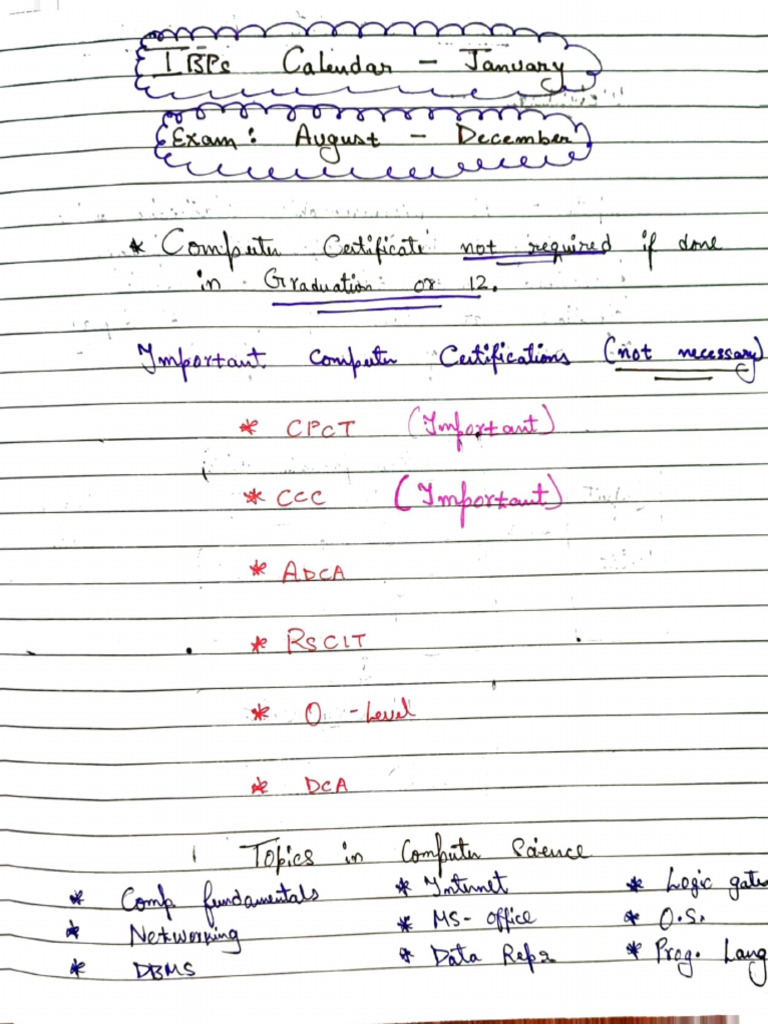 IBPs Calendar - January
Exam: August - December
* Computer Certificate not required if done
in Graduation or 12.
Important Computer Certifications (not necessary)
* CPCT (Important)
* CCC (Important)
* ADCA
* RSCIT
* O - Level
* DCA
Topics in Computer Science
* Comp fundamentals * Internet * Logic gate
* Networking * MS-office * O.S.
* DBMS * Data Repr * Prog. Lang